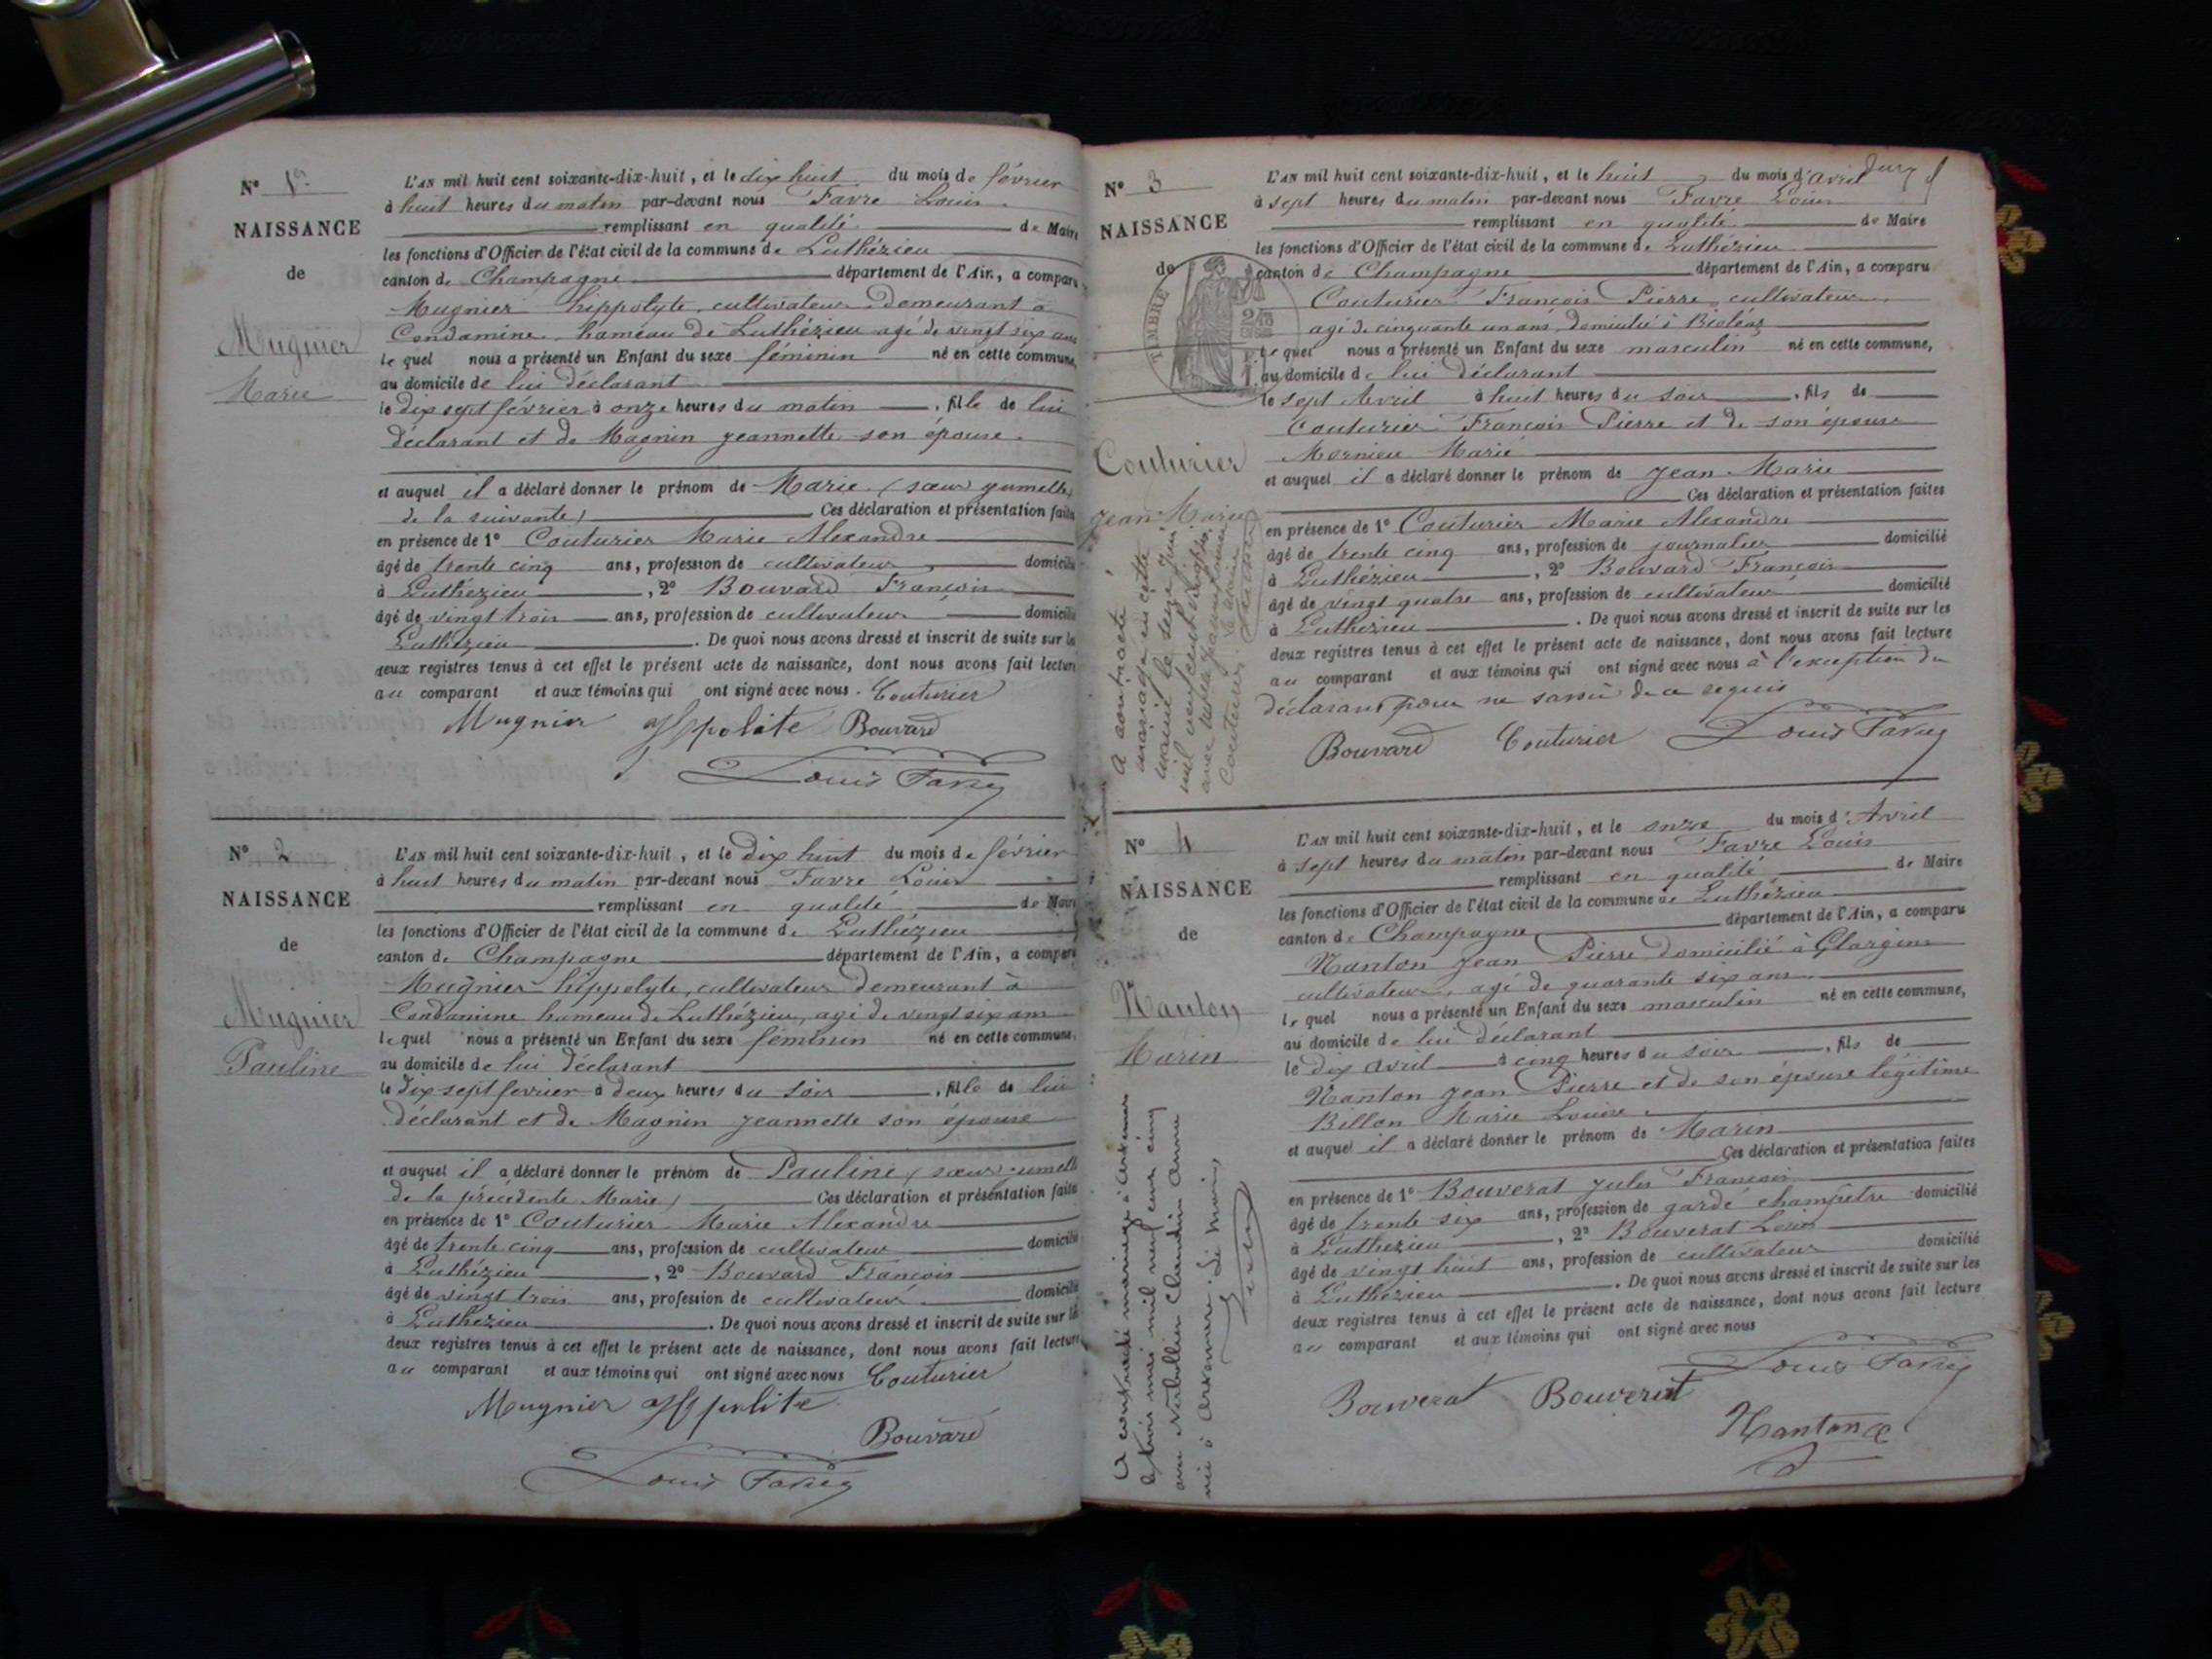 N° 1er
NAISSANCE
de
Mugnier
Marie
L'AN mil huit cent soixante-dix-huit, et le dix huit du mois de février
à huit heures du matin par-devant nous Favre Louis
remplissant en qualité de Maire
les fonctions d'Officier de l'état civil de la commune de Luthézieu
canton de Champagne département de l'Ain, a comparu
Mugnier hippolyte, cultivateur demeurant à
Condamine, hameau de Luthézieu agé de vingt six ans
lequel nous a présenté un Enfant du sexe féminin né en cette commune,
au domicile de lui déclarant
le dix sept février à onze heures du matin, fille de lui
déclarant et de Magnin jeannette son épouse
et auquel il a déclaré donner le prénom de Marie (sœur jumelle
de la suivante) Ces déclaration et présentation faites
en présence de 1° Couturier Marie Alexandre
âgé de trente cinq ans, profession de cultivateur domicilié
à Luthézieu, 2° Bouvard François
âgé de vingt trois ans, profession de cultivateur domicilié
Luthézieu. De quoi nous avons dressé et inscrit de suite sur les
deux registres tenus à cet effet le présent acte de naissance, dont nous avons fait lecture
au comparant et aux témoins qui ont signé avec nous. Couturier
Mugnier hyppolite Bouvard
Louis Favre
N° 2
NAISSANCE
de
Mugnier
Pauline
L'AN mil huit cent soixante-dix-huit, et le dix huit du mois de février
à huit heures du matin par-devant nous Favre Louis
remplissant en qualité de Maire
les fonctions d'Officier de l'état civil de la commune de Luthézieu
canton de Champagne département de l'Ain, a comparu
Mugnier hippolyte, cultivateur demeurant à
Condamine hameau de Luthézieu, agé de vingt six ans
lequel nous a présenté un Enfant du sexe féminin né en cette commune,
au domicile de lui déclarant
le dix sept fevrier à deux heures du soir, fille de lui
déclarant et de Magnin jeannette son épouse
et auquel il a déclaré donner le prénom de Pauline (sœur jumelle
de la précédente Marie) Ces déclaration et présentation faites
en présence de 1° Couturier Marie Alexandre
âgé de trente cinq ans, profession de cultivateur domicilié
à Luthézieu, 2° Bouvard François
âgé de vingt trois ans, profession de cultivateur domicilié
à Luthézieu. De quoi nous avons dressé et inscrit de suite sur les
deux registres tenus à cet effet le présent acte de naissance, dont nous avons fait lecture
au comparant et aux témoins qui ont signé avec nous Couturier
Mugnier hyppolite
Bouvard
Louis Favre
N° 3
NAISSANCE
de
TIMBRE
Couturier
Jean Marie
A contracté
mariage en cette
mairie le seize juin
mil neuf cent
avec
Couturier. Le maire
L'AN mil huit cent soixante-dix-huit, et le huit du mois d'avril
à sept heures du matin par-devant nous Favre Louis
remplissant en qualité de Maire
les fonctions d'Officier de l'état civil de la commune de Luthézieu
canton de Champagne département de l'Ain, a comparu
Couturier François Pierre, cultivateur,
agé de cinquante un ans, domicilié à Bioléaz
lequel nous a présenté un Enfant du sexe masculin né en cette commune,
au domicile de lui déclarant
le sept Avril à huit heures du soir, fils de
Couturier François Pierre et de son épouse
Mornieu Marie
et auquel il a déclaré donner le prénom de Jean Marie
Ces déclaration et présentation faites
en présence de 1° Couturier Marie Alexandre
âgé de trente cinq ans, profession de journalier domicilié
à Luthézieu, 2° Bouvard François
âgé de vingt quatre ans, profession de cultivateur domicilié
à Luthézieu. De quoi nous avons dressé et inscrit de suite sur les
deux registres tenus à cet effet le présent acte de naissance, dont nous avons fait lecture
au comparant et aux témoins qui ont signé avec nous à l'exception du
déclarant pour ne savoir de ce requis
Bouvard Couturier Louis Favre
N° 4
NAISSANCE
de
Nanton
Marin
A contracté mariage à
le trois mai mil neuf cent cinq
avec Claudine Anna
née à. Le Maire,
L'AN mil huit cent soixante-dix-huit, et le onze du mois d'Avril
à sept heures du matin par-devant nous Favre Louis
remplissant en qualité de Maire
les fonctions d'Officier de l'état civil de la commune de Luthézieu
canton de Champagne département de l'Ain, a comparu
Nanton Jean Pierre domicilié à Glargin
cultivateur, agé de quarante six ans,
lequel nous a présenté un Enfant du sexe masculin né en cette commune,
au domicile de lui déclarant
le dix avril à cinq heures du soir, fils de
Nanton Jean Pierre et de son épouse légitime
Billon Marie Louise
et auquel il a déclaré donner le prénom de Marin
Ces déclaration et présentation faites
en présence de 1° Bouverat Jules François
âgé de trente six ans, profession de garde champêtre domicilié
à Luthézieu, 2° Bouverat Louis
âgé de vingt huit ans, profession de cultivateur domicilié
à Luthézieu. De quoi nous avons dressé et inscrit de suite sur les
deux registres tenus à cet effet le présent acte de naissance, dont nous avons fait lecture
au comparant et aux témoins qui ont signé avec nous
Louis Favre
Bouverat Bouverat
Nanton